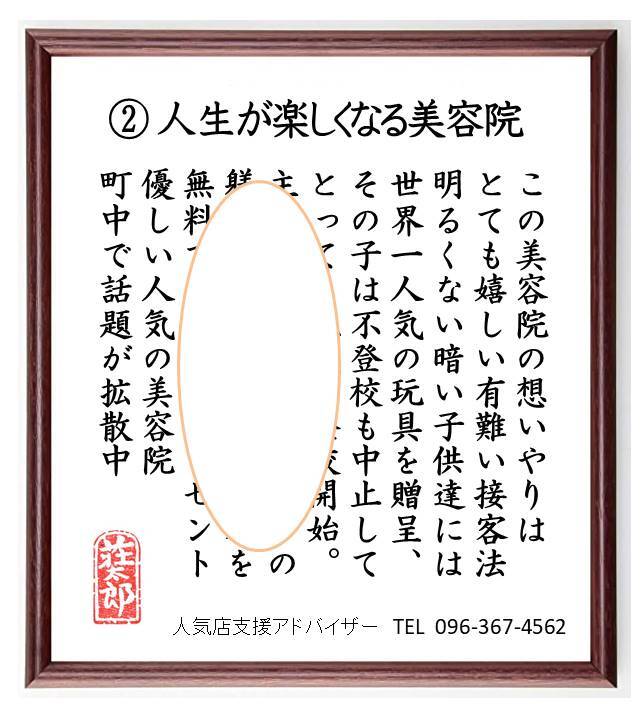 ②人生が楽しくなる美容院
この美容院の想いやりは
とても嬉しい有難い接客法
明るくない暗い子供達には
世界一人気の玩具を贈呈、
その子は不登校も中止して
とって 校開始。
主 の
躾 を
無料で セント
優しい人気の美容院
町中で話題が拡散中
荘太郎
人気店支援アドバイザー TEL 096-367-4562